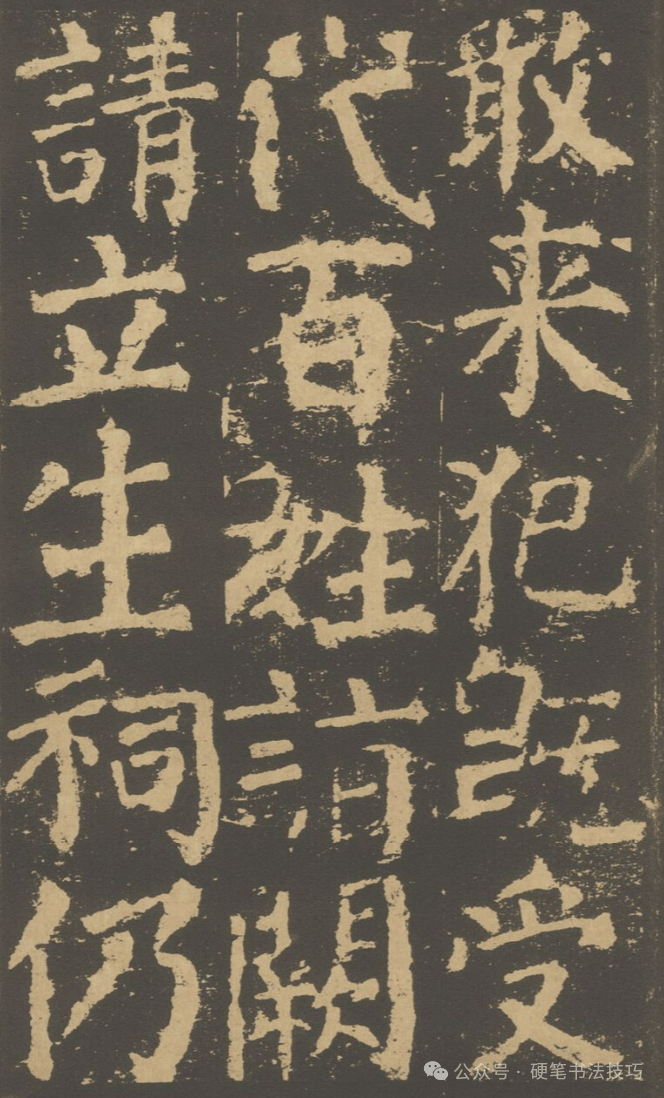 敢来犯既受
代百姓詣闕
請立生祠仍
公众号·硬笔书法技巧